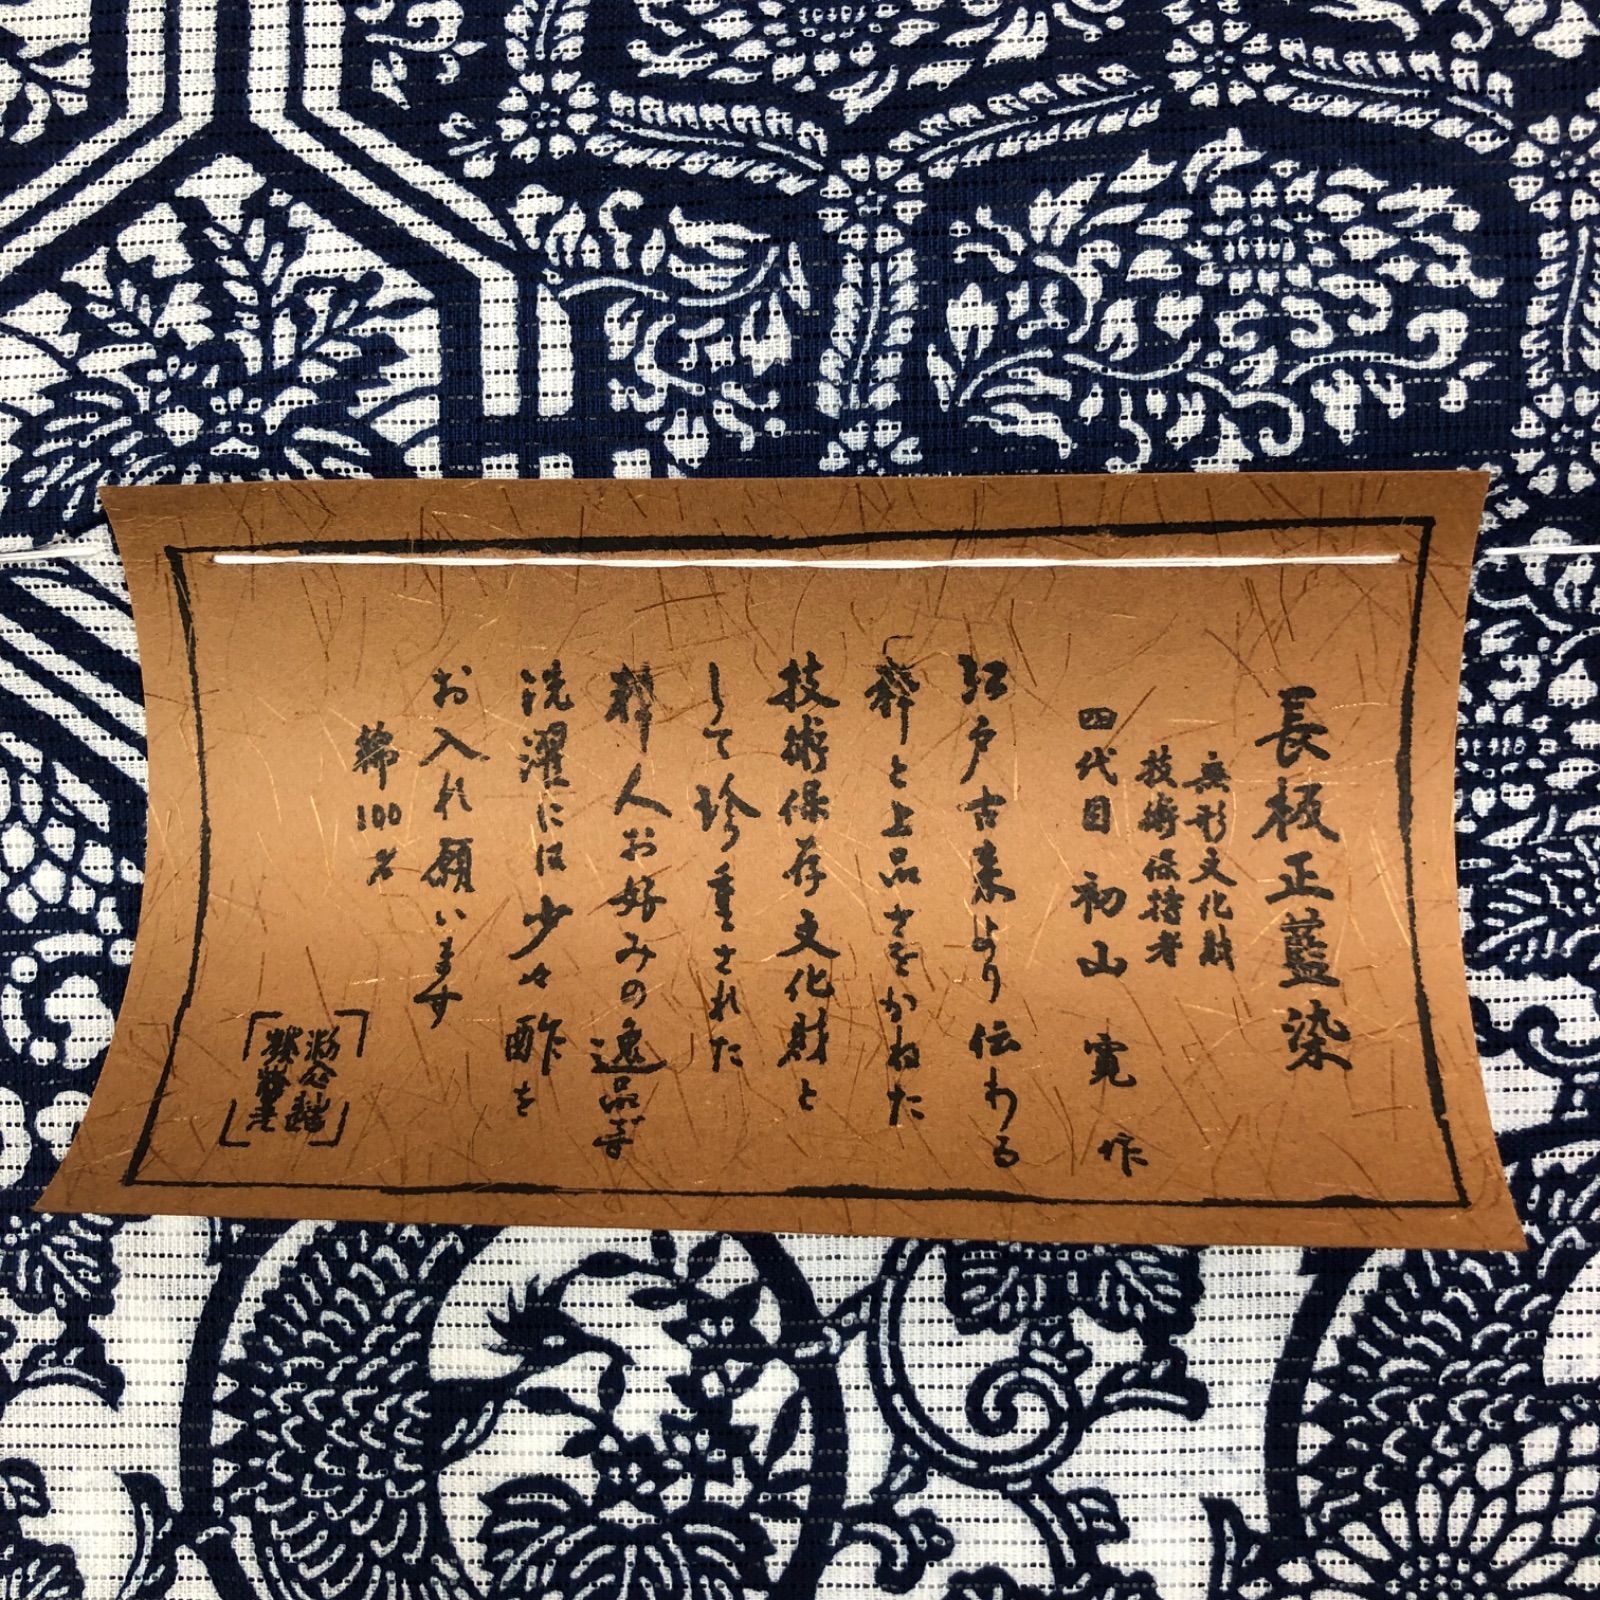 長板正藍染
無形文化財
技術保持者
四代目 初山 寛 作
江戸古来より伝わる
粋と上品さをかねた
技術保存文化財と
して珍重された
粋人お好み の逸品です
洗濯には少々酢を
お入れ願います
綿100%